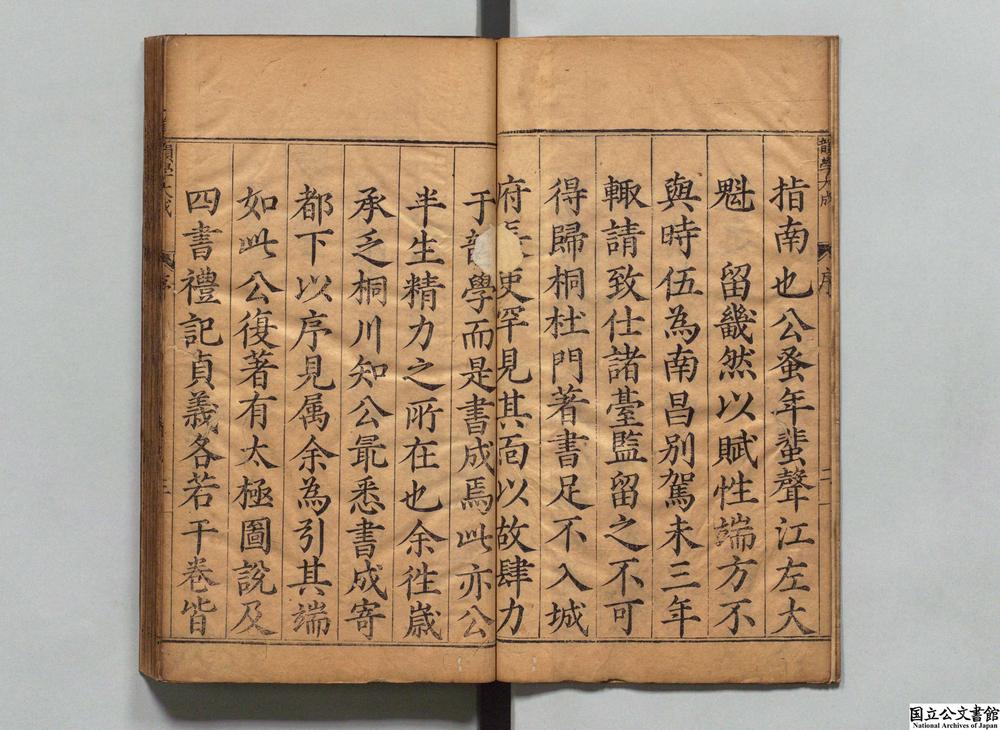 韻學大成 序
指南也公蚤年蜚聲江左大
魁 留畿然以賦性端方不
與時伍為南昌別駕未三年
輙請致仕諸臺監留之不可
得歸桐杜門著書足不入城
府 吏罕見其面以故肆力
于 學而是書成焉此亦公
半生精力之所在也余徃歲
承乏桐川知公最悉書成寄
都下以序見属余為引其端
如此公復著有太極圖說及
四書禮記貞義各若干卷皆
韻學大成 序
国立公文書館
National Archives of Japan